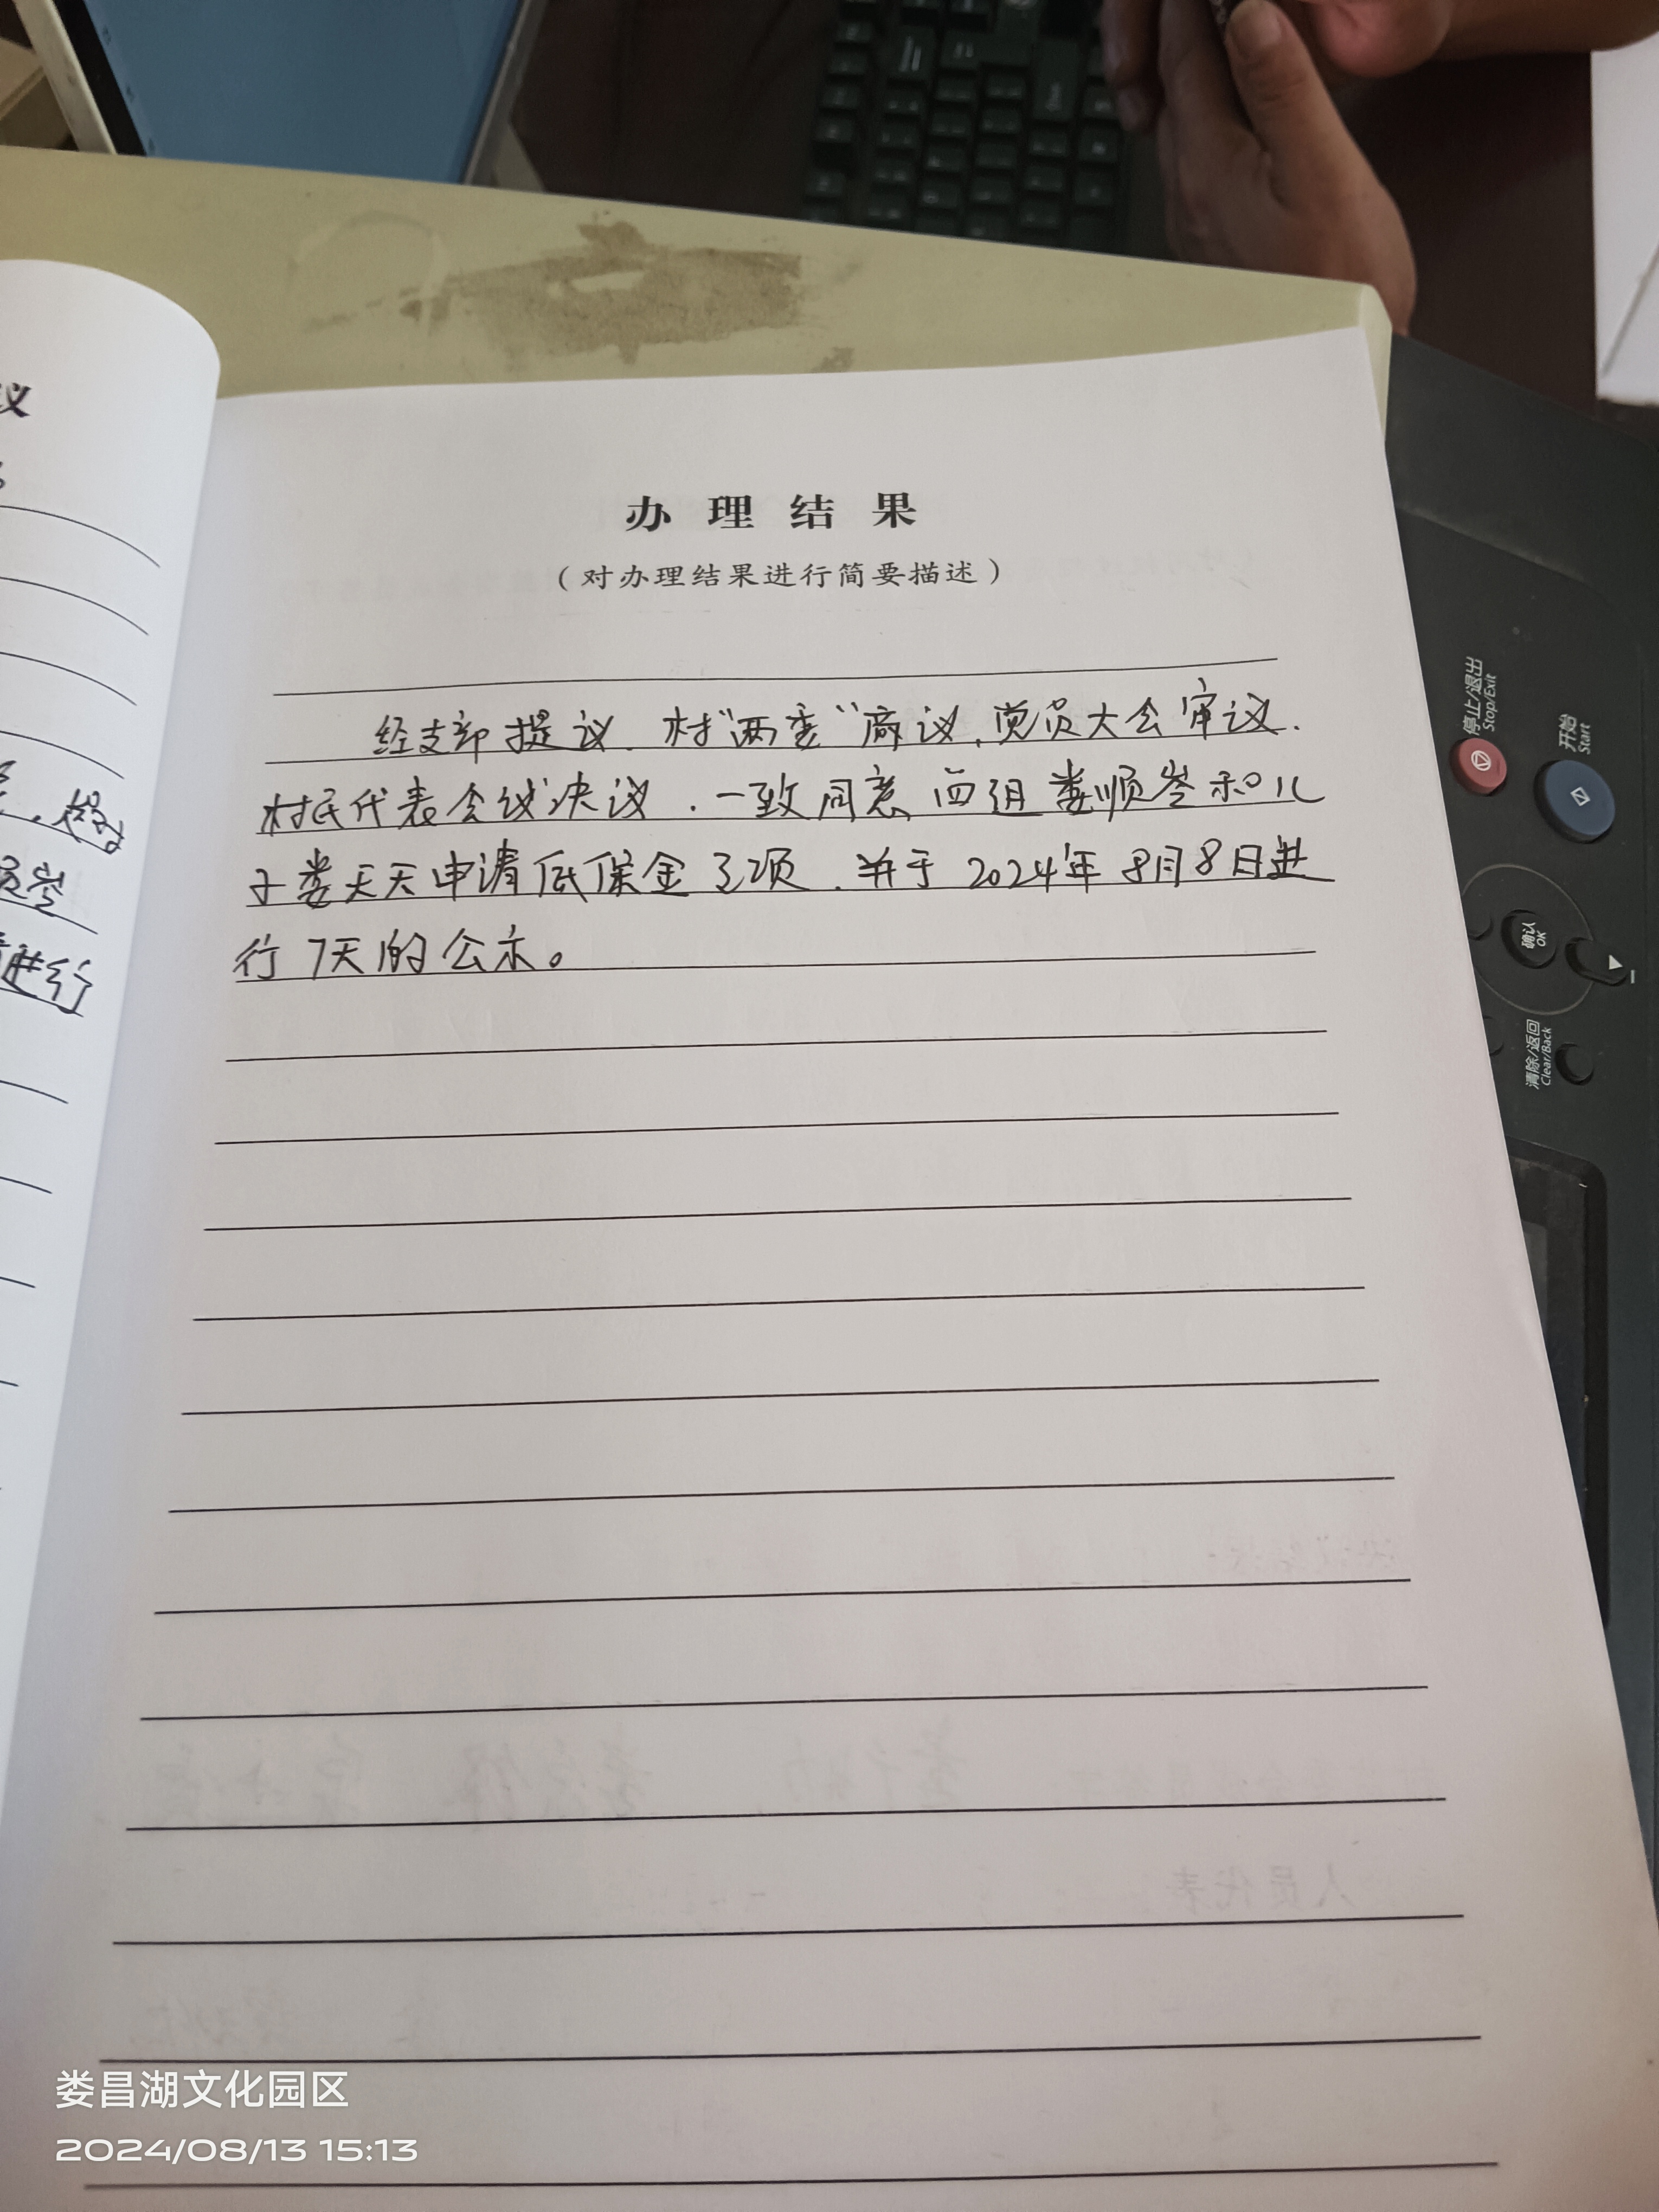 议
办理结果
（对办理结果进行简要描述）
经支部提议、村“两委”商议、党员大会审议、
村民代表会议决议、一致同意四组娄顺岑和儿
子娄天天申请低保金了项、并于2024年8月8日进
行7天的公示。
进行
停止/退出
Stop/Exit
开始
Start
确认
OK
清除/返回
Clear/Back
人员代表
娄昌湖文化园区
2024/08/13 15:13